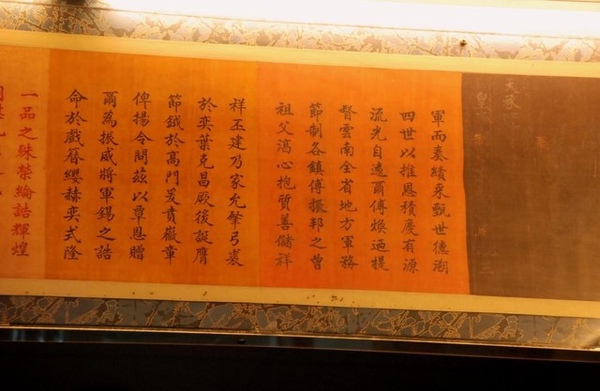 天承
皇
軍而奏績采甄世德溯
四世以推恩積慶有源
流光自遠爾傅烺迺提
督雲南全省地方軍務
節制各鎮傅振邦之曾
祖父心抱質善儲祥
祥丕建乃家允肇弓裘
於奕葉克昌厥後誕膺
節鉞於高門爰賁徽章
俾揚令聞茲以覃恩贈
爾為振威將軍錫之誥
命於戲簪纓赫奕式隆
一品之殊榮綸誥輝煌